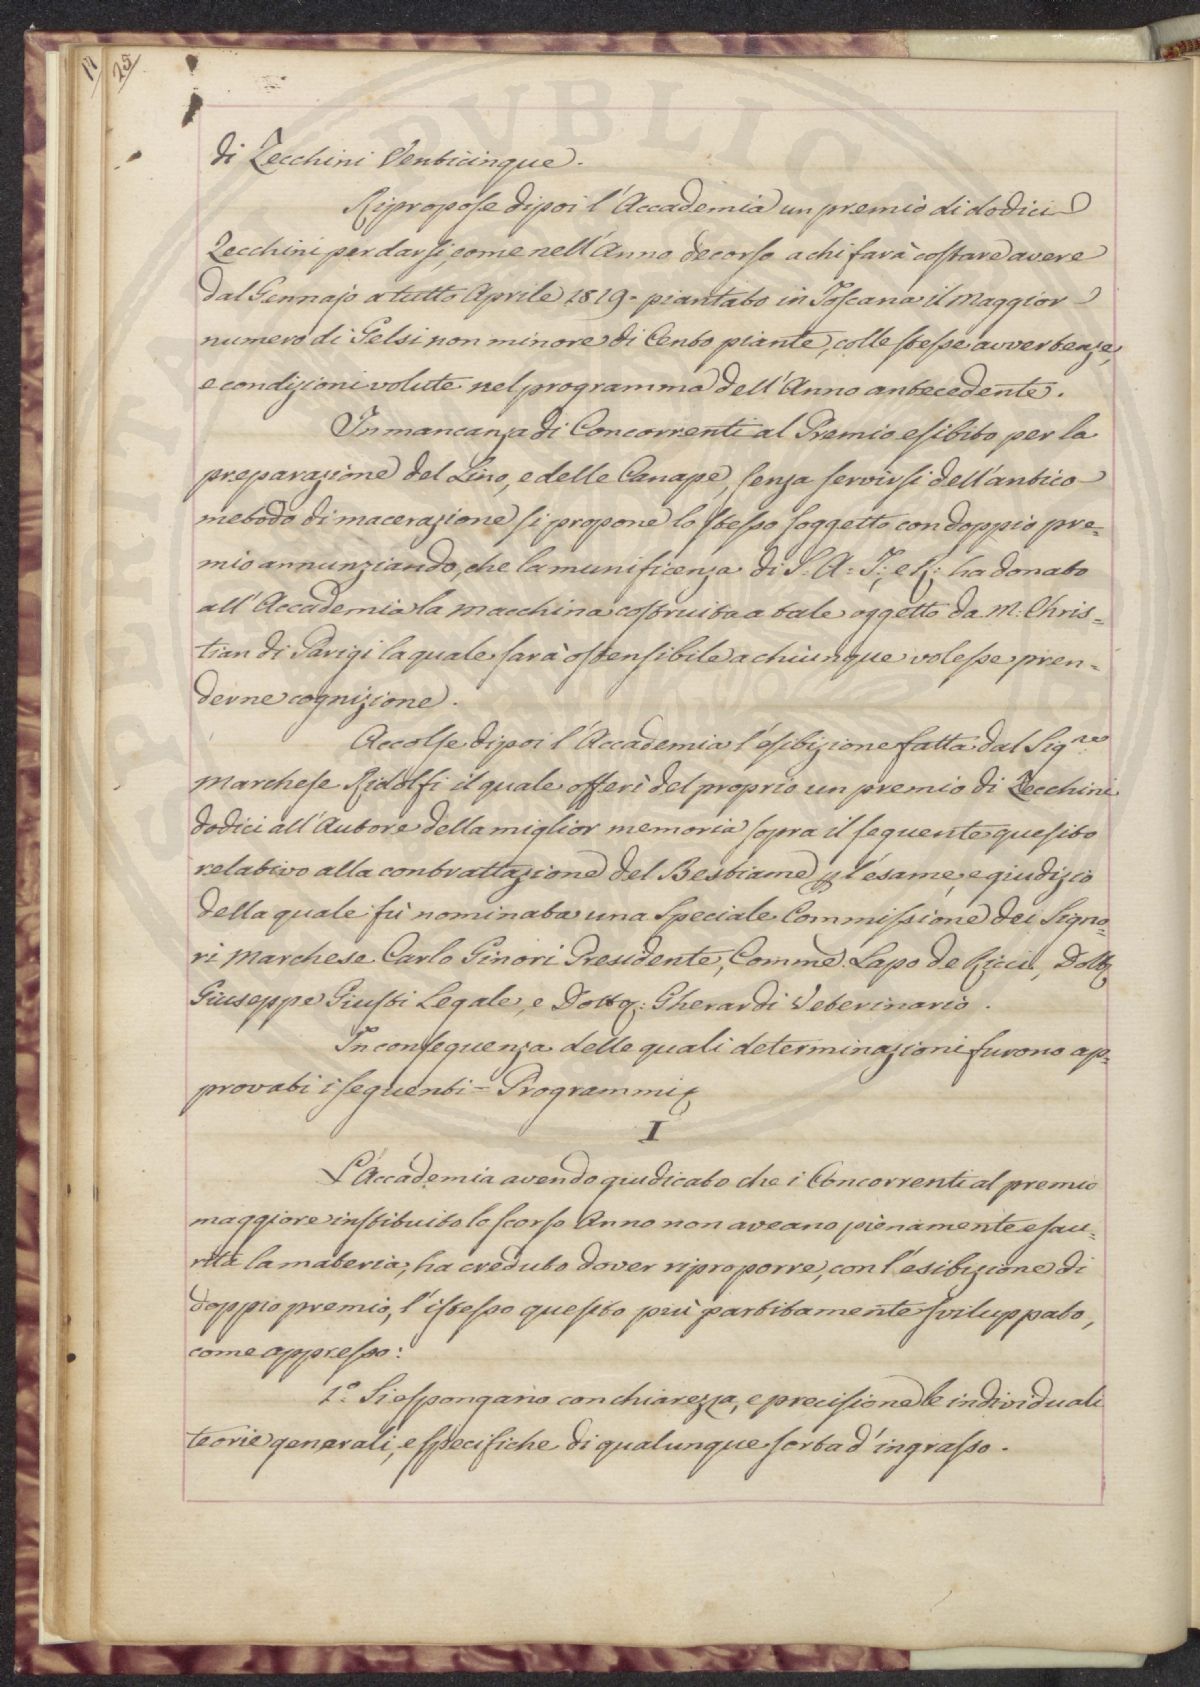 11
25
di Zecchini Venticinque.
Ripropose dipoi l'Accademia un premio di dodici
Zecchini per darsi, come nell'Anno decorso a chi farà costare avere
dal Gennajo a tutto Aprile 1819. piantato in Toscana il Maggior
numero di Gelsi non minore di Cento piante, colle stesse avvertenze,
e condizioni volute nel programma dell'Anno antecedente.
In mancanza di Concorrenti al Premio esibito per la
preparazione del Lino, e delle Canape, senza servirsi dell'antico
metodo di macerazione si propone lo stesso soggetto con doppio pre=
mio annunziando, che la munificenza di S. A. I; e R; ha donato
all'Accademia la macchina costruita a tale oggetto da M: Chris=
tian di Parigi la quale sarà ostensibile a chiunque volesse pren=
derne cognizione.
Accolse dipoi l'Accademia l'esibizione fatta dal Sig.re
Marchese Ridolfi il quale offerì del proprio un premio di Zecchini
dodici all'Autore della miglior memoria sopra il seguente quesito
relativo alla contrattazione del Bestiame, l'esame, e giudizio
della quale fù nominata una Speciale Commissione dei Signo=
ri Marchese Carlo Ginori Presidente, Comme. Lapo de Ricci, Dott
Giuseppe Giusti Legale, e Dott: Gherardi Veterinario.
In conseguenza delle quali determinazioni furono ap=
provati i seguenti = Programmi
I
L'Accademia avendo giudicato che i Concorrenti al premio
maggiore instituito lo scorso Anno non aveano pienamente esau=
rita la materia, ha creduto dover riproporre, con l'esibizione di
doppio premio, l'istesso quesito più partitamente sviluppato,
come appresso:
1.° Si espongano con chiarezza, e precisione le individuali
teorie generali, e specifiche di qualunque sorta d'ingrasso.